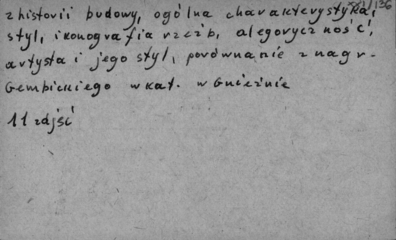 z historii budowy, ogólna charakterystyka,
styl, ikonografia rzeźb, alegoryczność,
artysta i jego styl, porównanie z nagr.
Gembickiego w kat. w Gnieźnie
11 zdjęć